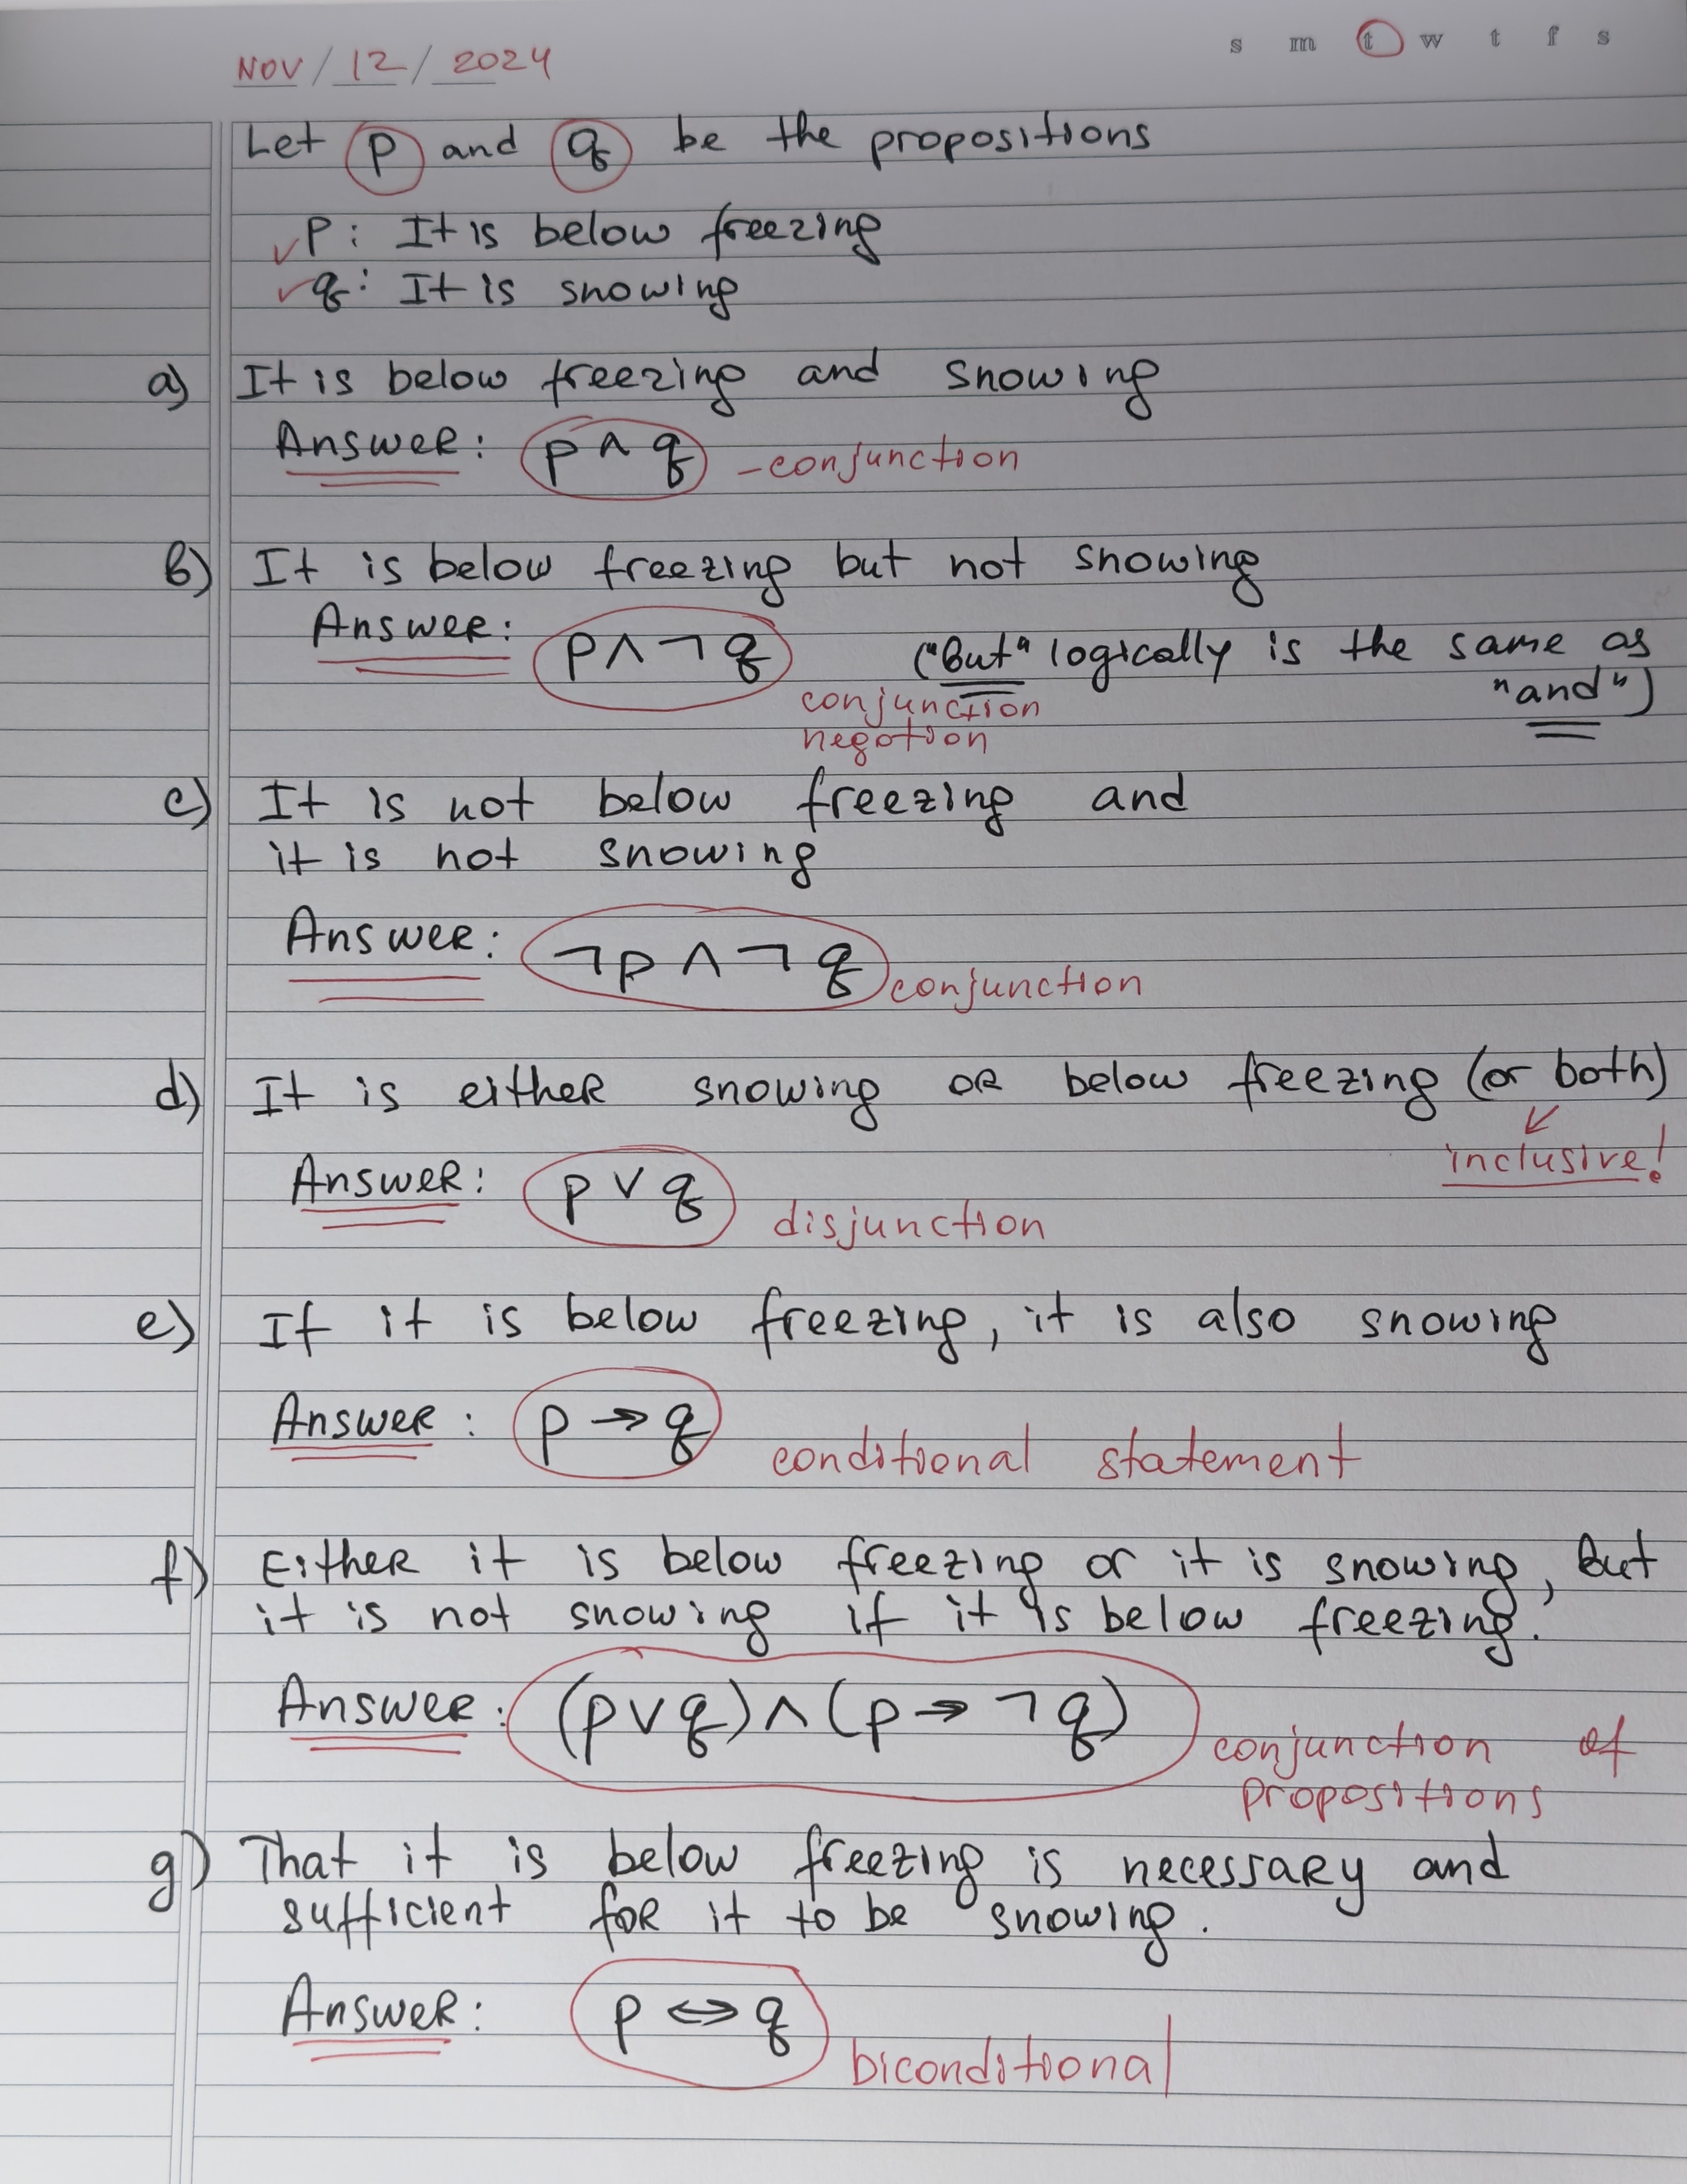 NOV / 12 / 2024 s m t w t f s
Let p and q be the propositions
p: It is below freezing
q: It is snowing
a) It is below freezing and snowing
Answer: p ∧ q - conjunction
b) It is below freezing but not snowing
Answer: p ∧ ¬ q ("But" logically is the same as "and")
conjunction
negotion
c) It is not below freezing and
it is not snowing
Answer: ¬p ∧ ¬ q conjunction
d) It is either snowing or below freezing (or both)
inclusive!
Answer: p ∨ q disjunction
e) If it is below freezing, it is also snowing
Answer: p → q conditional statement
f) Either it is below freezing or it is snowing, but
it is not snowing if it is below freezing.
Answer: (p ∨ q) ∧ (p → ¬ q) conjunction of
propositions
g) That it is below freezing is necessary and
sufficient for it to be snowing.
Answer: p ⇔ q biconditional